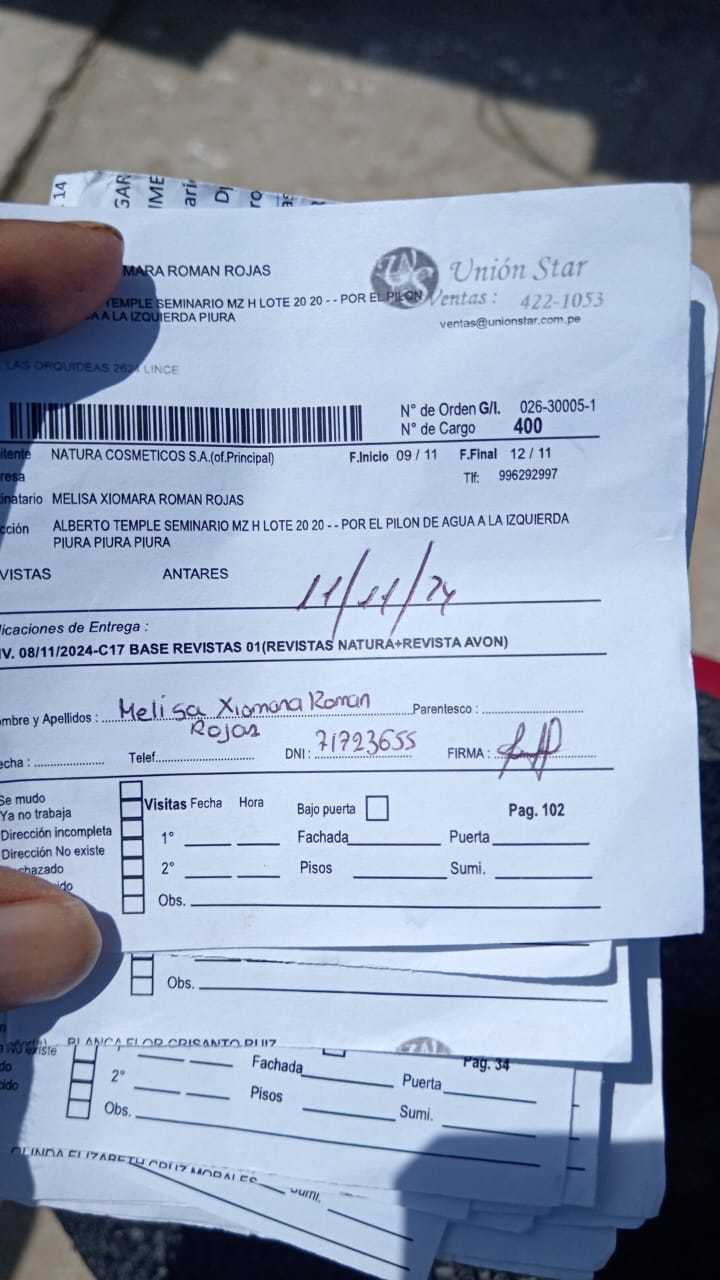 14 GAR IME ari
MARA ROMAN ROJAS
Unión Star
TEMPLE SEMINARIO MZ H LOTE 20 20 - - POR EL PILON
Ventas : 422-1053
A LA IZQUIERDA PIURA
ventas@unionstar.com.pe
LAS ORQUIDEAS 2624 LINCE
N° de Orden G/I. 026-30005-1
N° de Cargo 400
itente NATURA COSMETICOS S.A.(of.Principal) F.Inicio 09 / 11 F.Final 12 / 11
resa Tlf: 996292997
inatario MELISA XIOMARA ROMAN ROJAS
cción ALBERTO TEMPLE SEMINARIO MZ H LOTE 20 20 - - POR EL PILON DE AGUA A LA IZQUIERDA
PIURA PIURA PIURA
VISTAS ANTARES
11/11/24
licaciones de Entrega :
V. 08/11/2024-C17 BASE REVISTAS 01(REVISTAS NATURA+REVISTA AVON)
ombre y Apellidos : Melisa Xiomara Roman Parentesco :
Rojas
echa : Telef. DNI : 71723655 FIRMA :
Se mudo
Ya no trabaja
Dirección incompleta
Dirección No existe
chazado
ido
Visitas Fecha Hora Bajo puerta Pag. 102
1° Fachada Puerta
2° Pisos Sumi.
Obs.
Obs.
BLANCA FLOR CRISANTO RUIZ
No existe
do
cido
Fachada Pag. 34
2° Pisos Puerta
Obs. Sumi.
OLINDA ELIZABETH CRUZ MORALES
Sumi.